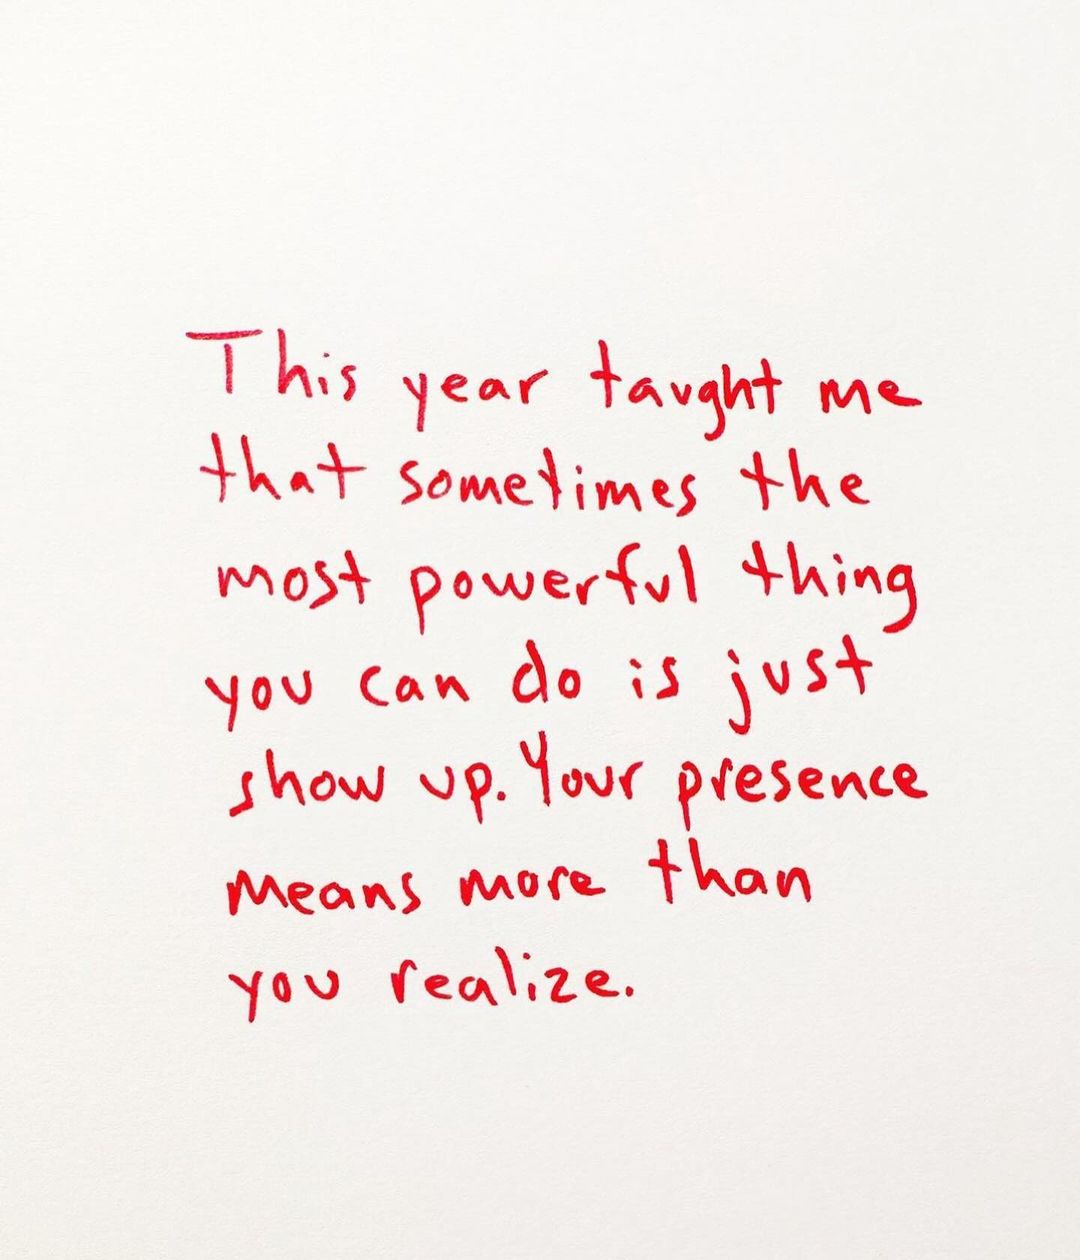 This year taught me
that sometimes the
most powerful thing
you can do is just
show up. Your presence
means more than
you realize.